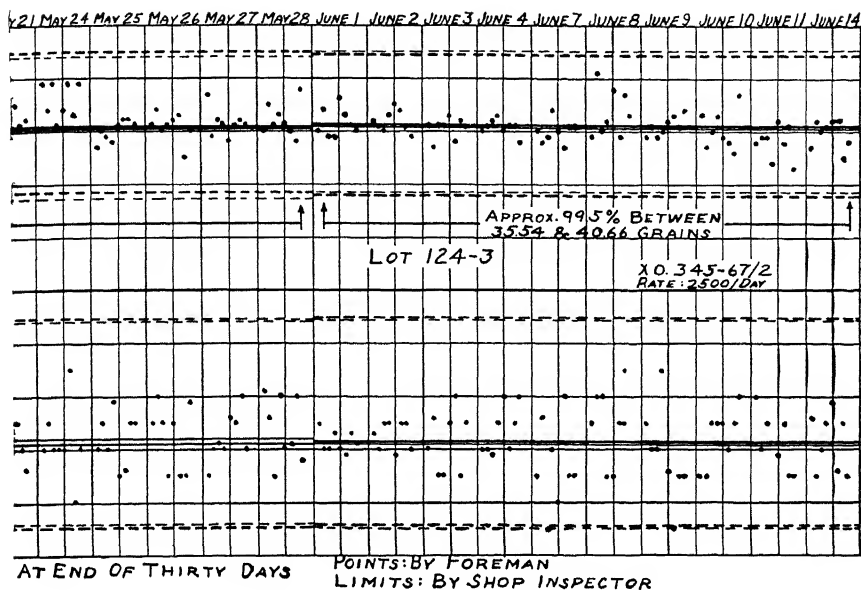 Y 21 MAY 24 MAY 25 MAY 26 MAY 27 MAY 28 JUNE 1 JUNE 2 JUNE 3 JUNE 4 JUNE 7 JUNE 8 JUNE 9 JUNE 10 JUNE 11 JUNE 14
APPROX. 99.5% BETWEEN
35.54 & 40.66 GRAINS
LOT 124-3
XO. 345-67/2
RATE: 2500/DAY
AT END OF THIRTY DAYS
POINTS: BY FOREMAN
LIMITS: BY SHOP INSPECTOR